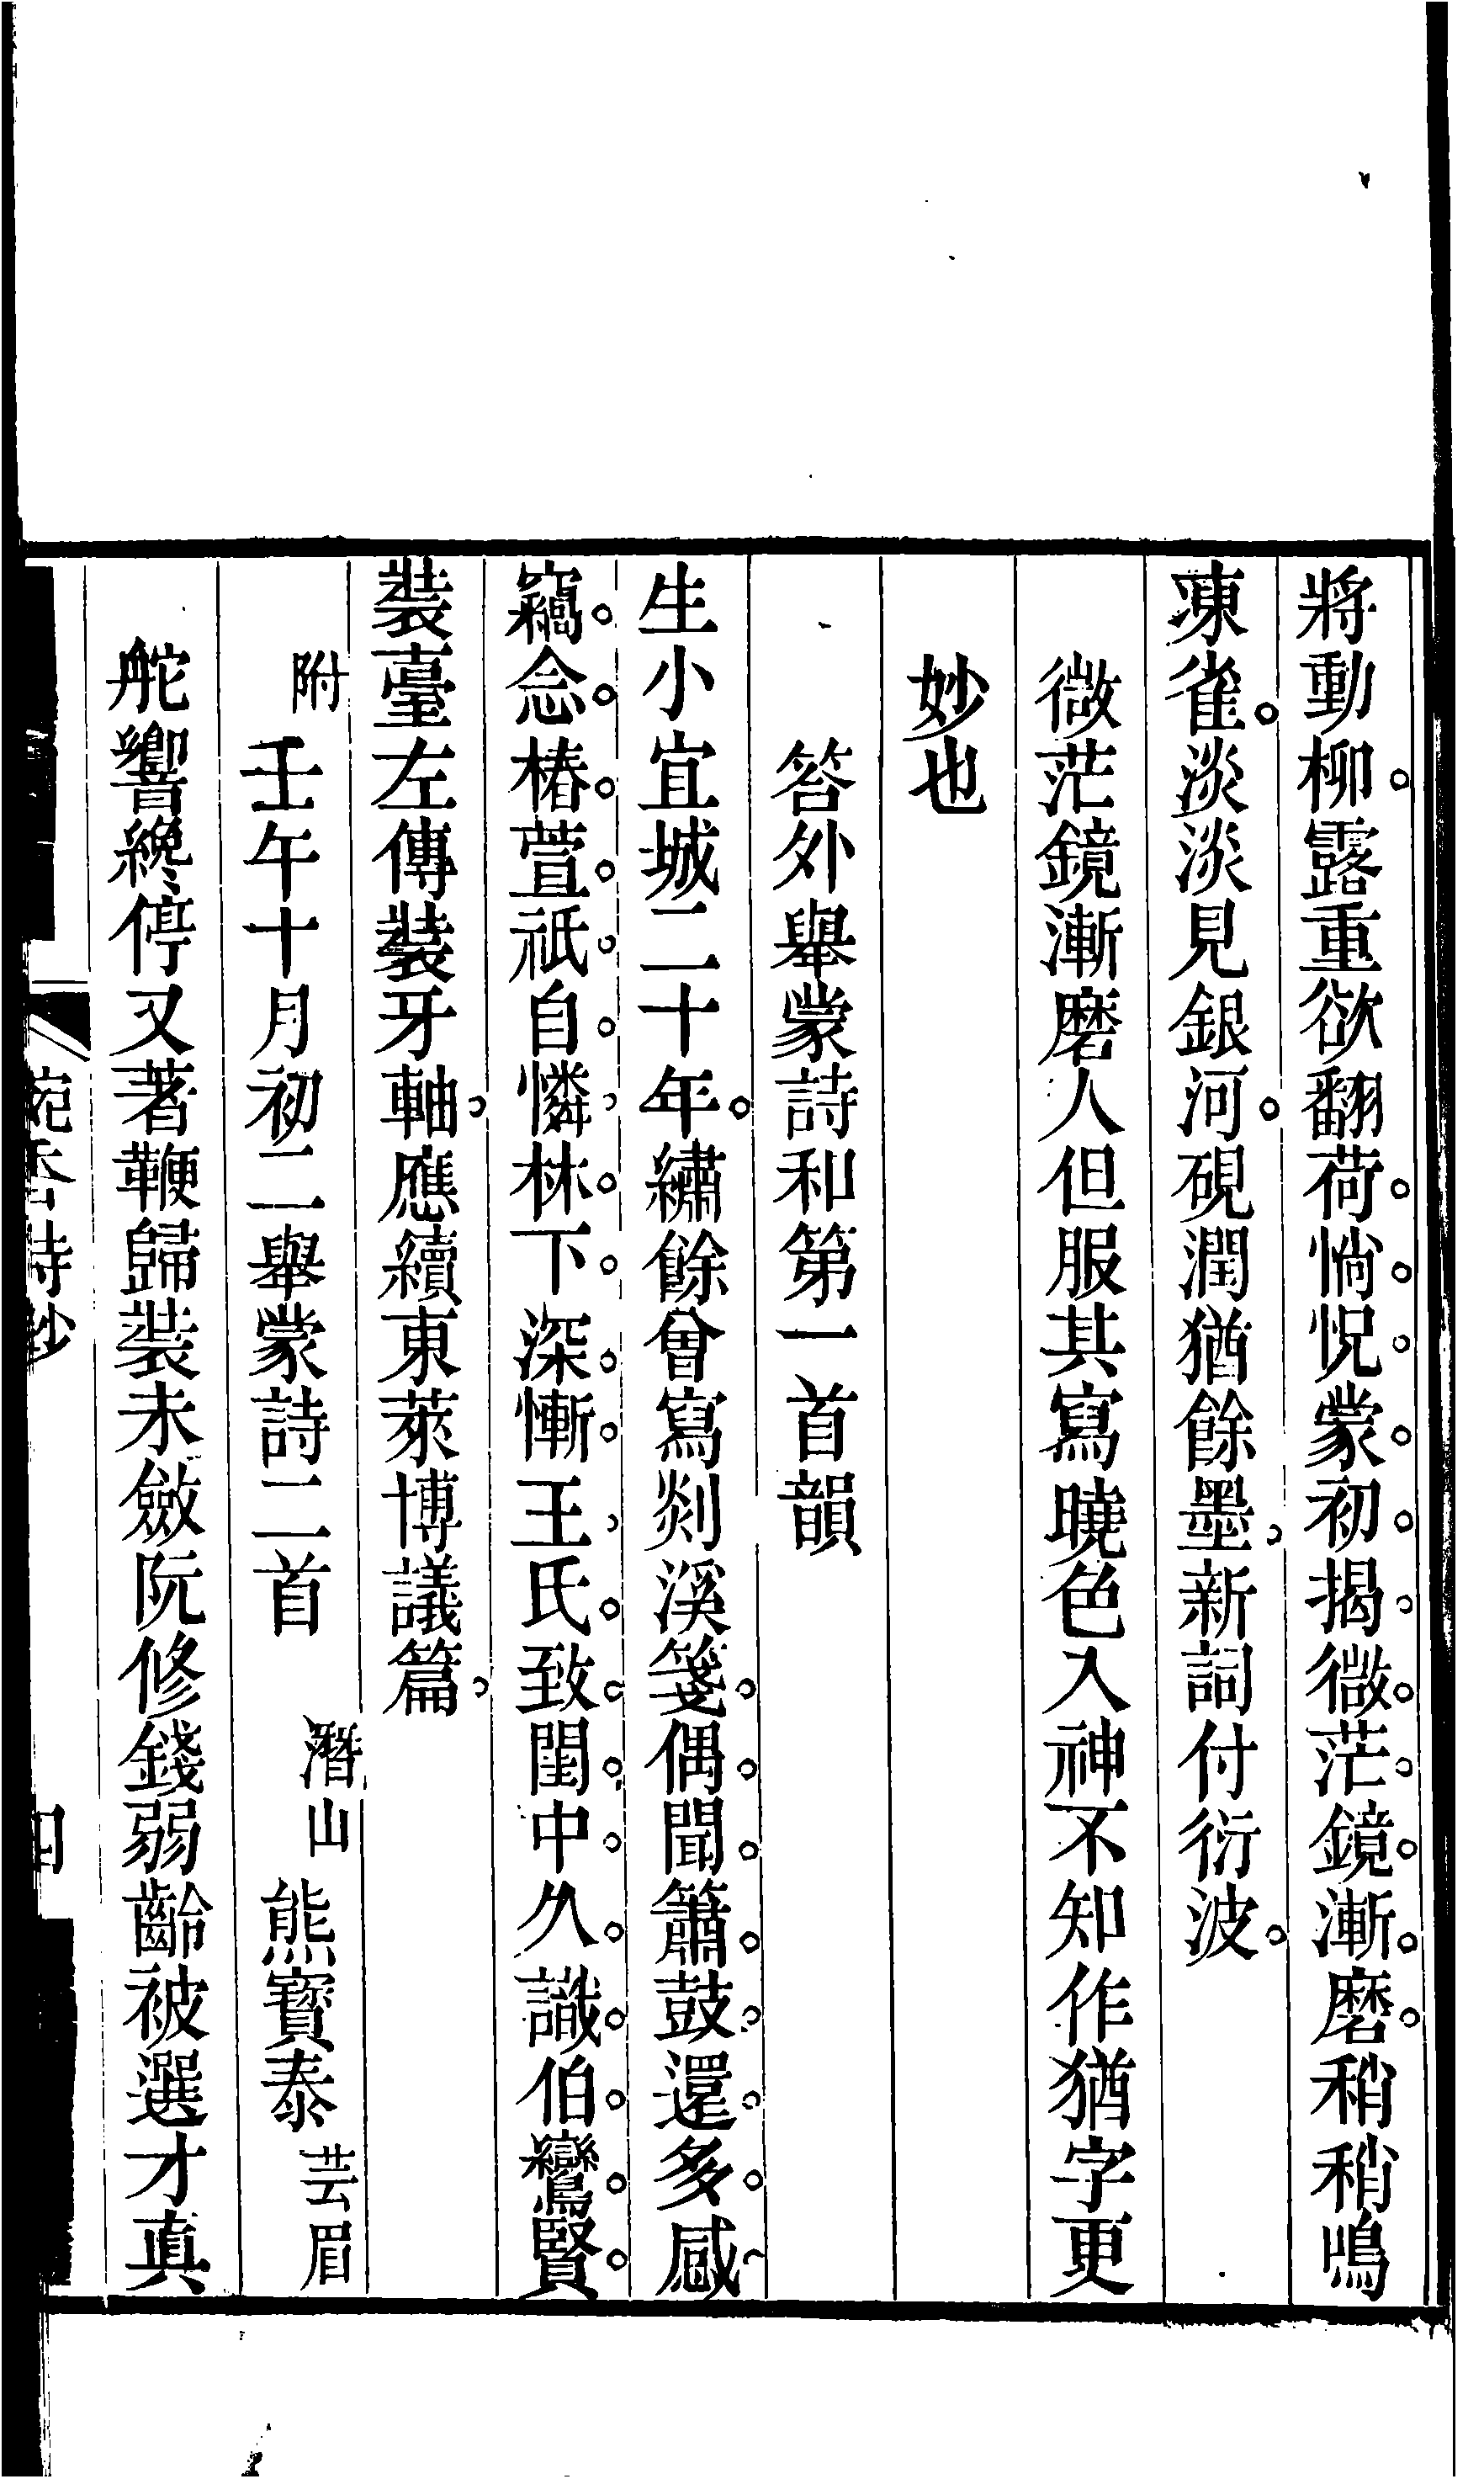 將動柳露重欲翻荷惝怳蒙初揭微茫鏡漸磨稍稍鳴
凍雀淡淡見銀河硯潤猶餘墨新詞付衍波
微茫鏡漸磨人但服其寫曉色入神不知作猶字更
妙也
答外舉蒙詩和第一首韻
生小宜城二十年繡餘曾寫剡溪箋偶聞簫鼓還多感
竊念椿萱祇自憐林下深慚王氏致閨中久識伯鸞賢
裝臺左傳裝牙軸應續東萊博議篇
附壬午十月初二舉蒙詩二首 潛山熊寶泰芸眉
舵響纔停又著鞭歸裝未斂阮修錢弱齡被選才真
宛香詩鈔
四